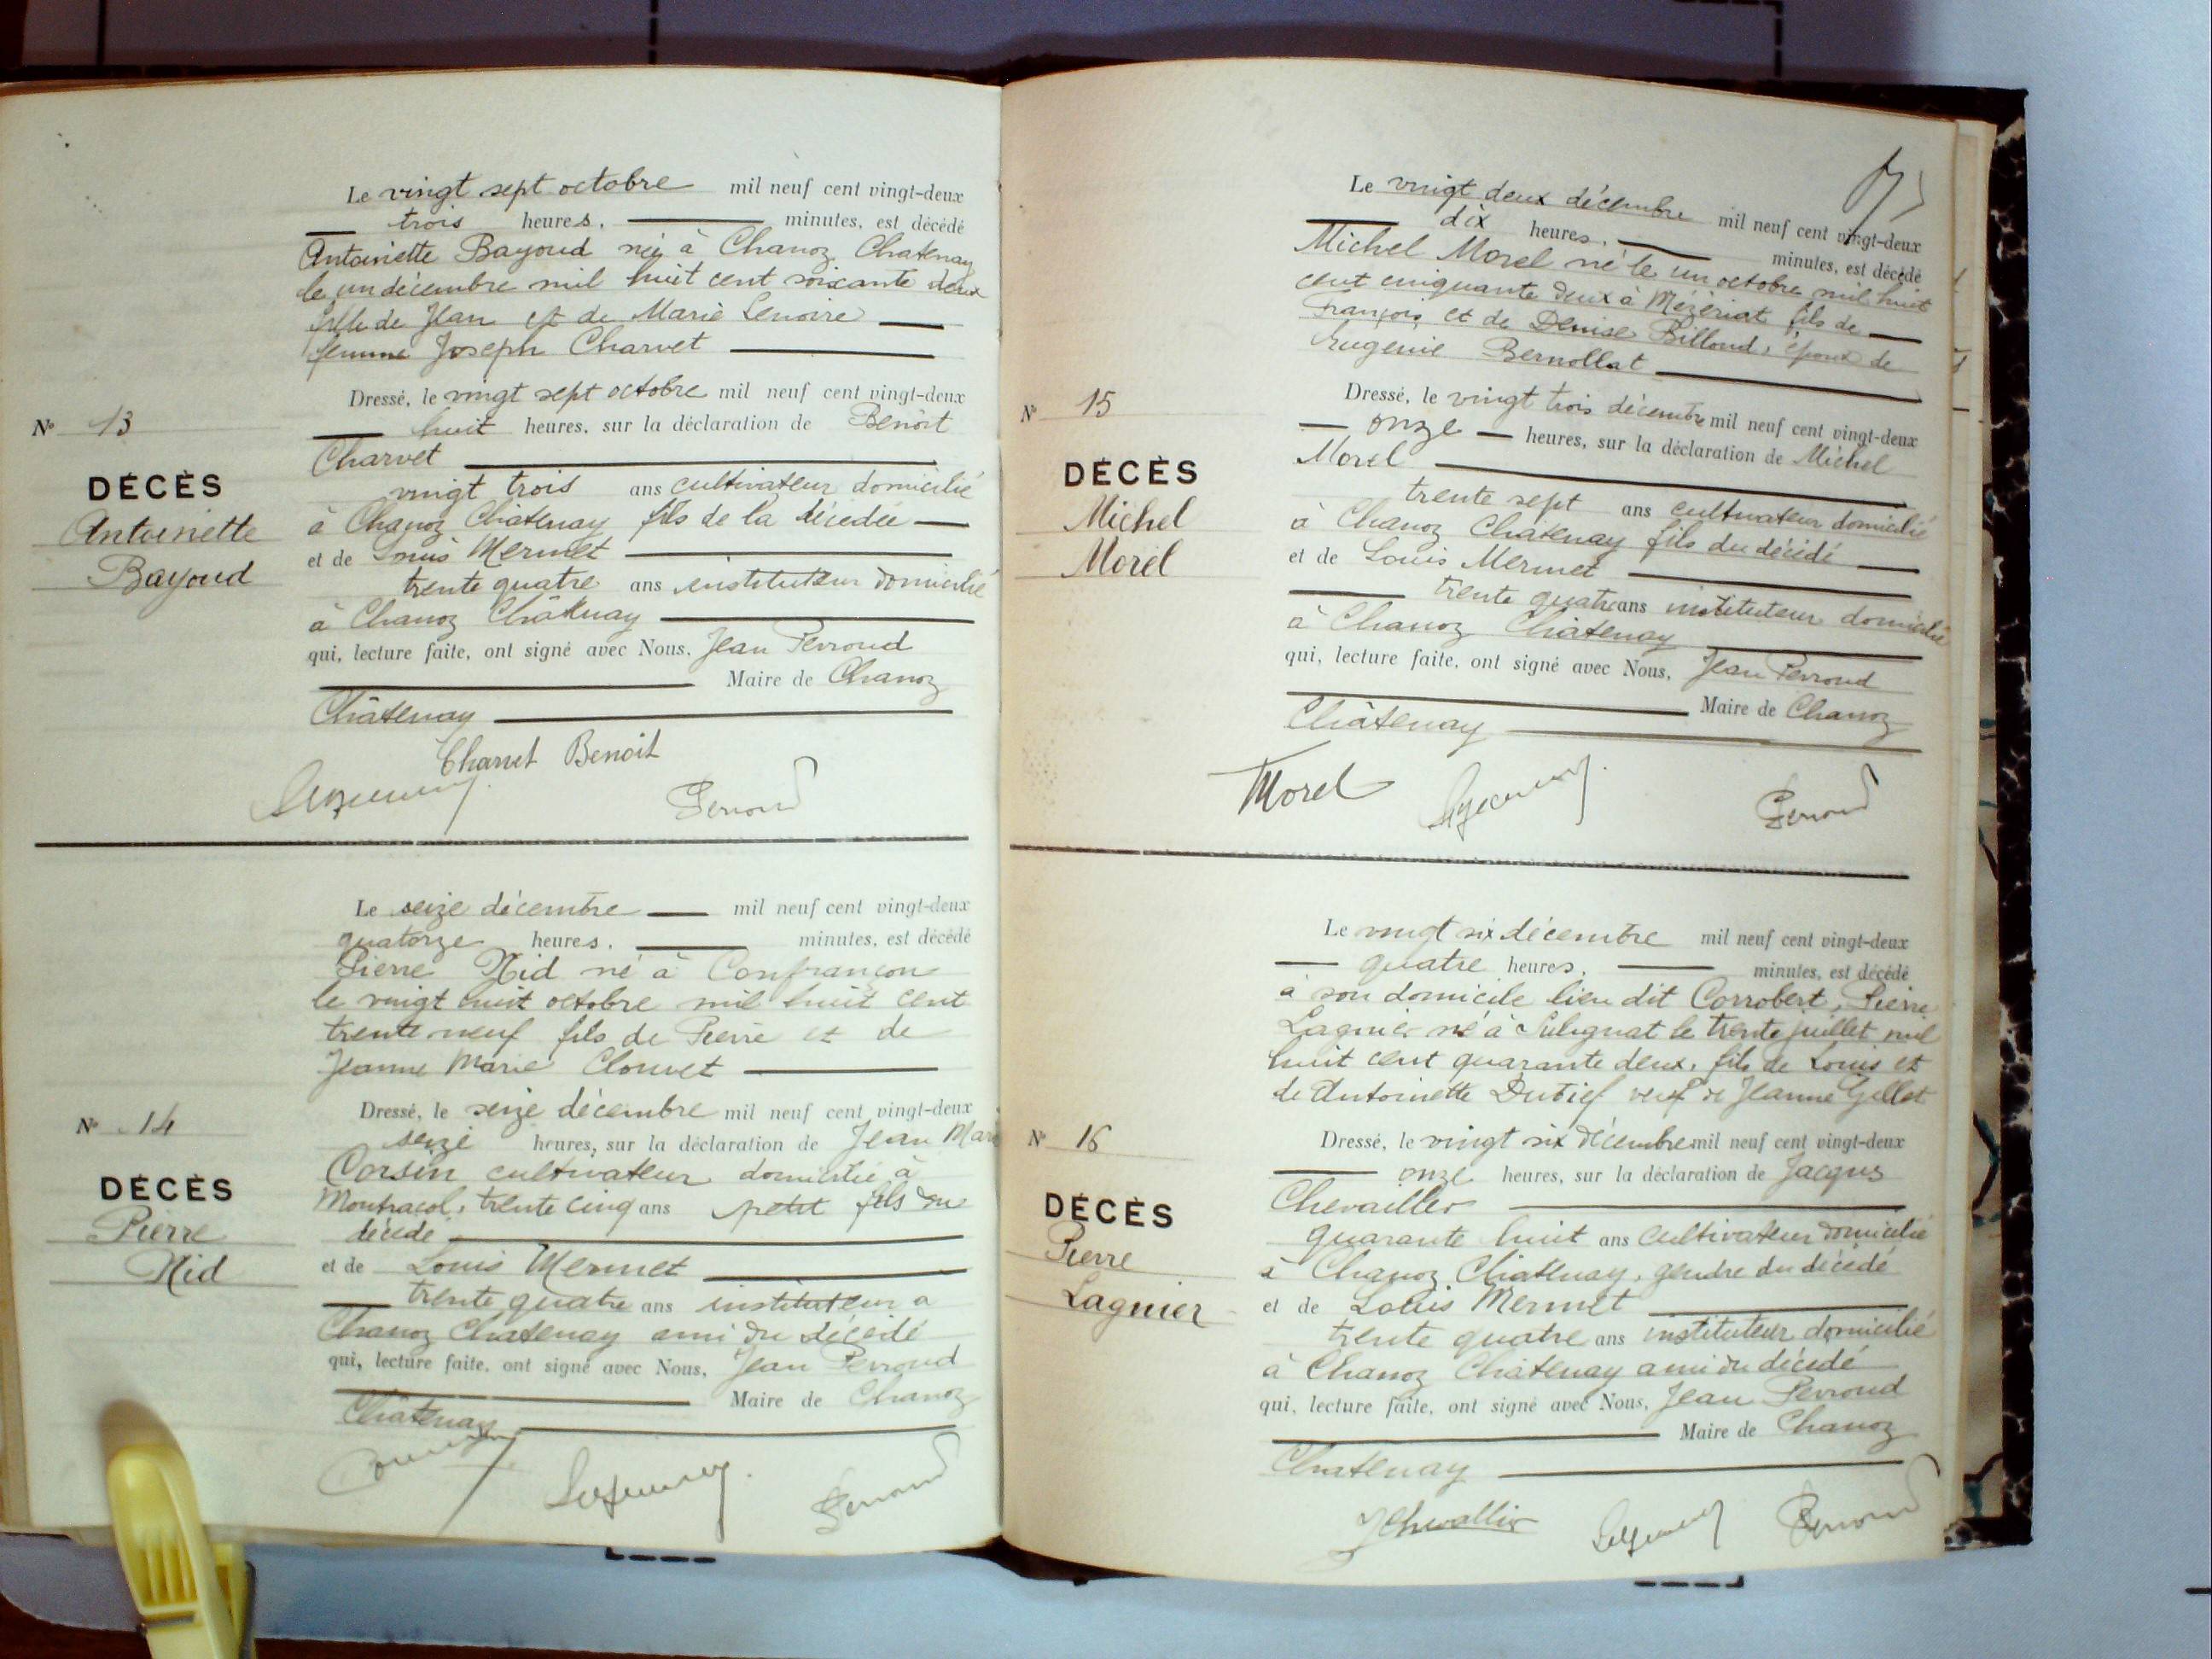 Le vingt sept octobre mil neuf cent vingt-deux
trois heures, minutes, est décédé
Antoinette Bayoud née à Chanoz Chatenay
le un décembre mil huit cent soixante deux
fille de Jean et de Marie Lenoire
femme Joseph Charvet
Dressé, le vingt sept octobre mil neuf cent vingt-deux
huit heures, sur la déclaration de Benoît
Charvet
vingt trois ans cultivateur domicilié
à Chanoz Châtenay fils de la décédée
et de Louis Mermet
trente quatre ans instituteur domicilié
à Chanoz Châtenay
qui, lecture faite, ont signé avec Nous, Jean Perroud
Maire de Chanoz
Châtenay
Charvet Benoit
Perroud
N° 13
DÉCÈS
Antoinette
Bayoud
Le seize décembre mil neuf cent vingt-deux
quatorze heures, minutes, est décédé
Pierre Nid né à Confrançon
le vingt huit octobre mil huit cent
trente neuf fils de Pierre et de
Jeanne Marie Clouvet
Dressé, le seize décembre mil neuf cent vingt-deux
seize heures, sur la déclaration de Jean Marie
Corsin cultivateur domicilié à
Montracol, trente cinq ans petit fils du
décédé
et de Louis Mermet
trente quatre ans instituteur à
Chanoz Chatenay ami du décédé
qui, lecture faite, ont signé avec Nous, Jean Perroud
Maire de Chanoz
Châtenay
Perroud
N° 14
DÉCÈS
Pierre
Nid
Le vingt deux décembre mil neuf cent vingt-deux
dix heures, minutes, est décédé
Michel Morel né le un octobre mil huit
cent cinquante deux à Mézériat fils de
François et de Denise Billoud, époux de
Eugenie Bernollat
Dressé, le vingt trois décembre mil neuf cent vingt-deux
onze heures, sur la déclaration de Michel
Morel
trente sept ans cultivateur domicilié
à Chanoz Châtenay fils du décédé
et de Louis Mermet
trente quatre ans instituteur domicilié
à Chanoz Châtenay
qui, lecture faite, ont signé avec Nous, Jean Perroud
Maire de Chanoz
Châtenay
Morel
Perroud
N° 15
DÉCÈS
Michel
Morel
Le vingt six décembre mil neuf cent vingt-deux
quatre heures, minutes, est décédé
à son domicile lieu dit Corrobert, Pierre
Lagnier né à Sulignat le trente juillet mil
huit cent quarante deux, fils de Louis et
de Antoinette Dutief veuf de Jeanne Gillet
Dressé, le vingt six décembre mil neuf cent vingt-deux
onze heures, sur la déclaration de Jacques
Chevaillier
quarante huit ans cultivateur domicilié
à Chanoz Châtenay, gendre du décédé
et de Louis Mermet
trente quatre ans instituteur domicilié
à Chanoz Châtenay ami du décédé
qui, lecture faite, ont signé avec Nous, Jean Perroud
Maire de Chanoz
Chatenay
J Chevallier
Perroud
N° 16
DÉCÈS
Pierre
Lagnier